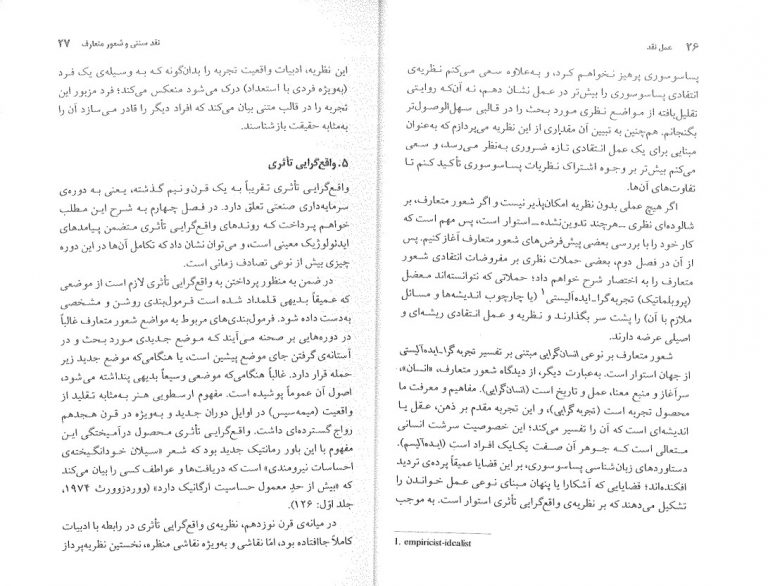 ۲۶ عمل نقد
پساسوسوری پرهیز نخواهم کرد، و به‌علاوه سعی می‌کنم نظریه‌ی
انتقادی پساسوسوری را بیش‌تر در عمل نشان دهم، نه آن‌که روایتی
تقلیل‌یافته از مواضع نظری مورد بحث را در قالبی سهل‌الوصول‌تر
بگنجانم. هم‌چنین به تبیین آن مقداری از این نظریه می‌پردازم که به‌عنوان
مبنایی برای یک عمل انتقادی تازه ضروری به‌نظر می‌رسد، و سعی
می‌کنم بیش‌تر بر وجوه اشتراک نظریات پساسوسوری تأکید کنم تا
تفاوت‌های آن‌ها.
اگر هیچ عملی بدون نظریه امکان‌پذیر نیست و اگر شعور متعارف، بر
شالوده‌ای نظری ــ هرچند تدوین‌نشده ــ استوار است، پس مهم است که
کار خود را با بررسی بعضی پیش‌فرض‌های شعور متعارف آغاز کنیم. پس
از آن در فصل دوم، بعضی حملات نظری بر مفروضات انتقادی شعور
متعارف را به اختصار شرح خواهم داد؛ حملاتی که نتوانسته‌اند معضل
(پروبلماتیک) تجربه‌گرا-ایده‌آلیستی۱ (یا چارچوب اندیشه‌ها و مسائل
ملازم با آن) را پشت سر بگذارند و نظریه و عمل انتقادی ریشه‌ای و
اصیلی عرضه دارند.
شعور متعارف بر نوعی انسان‌گرایی مبتنی بر تفسیر تجربه‌گرا-ایده‌آلیستی
از جهان استوار است. به‌عبارت دیگر، از دیدگاه شعور متعارف، «انسان»،
سرآغاز و منبع معنا، عمل و تاریخ است (انسان‌گرایی). مفاهیم و معرفت ما
محصول تجربه است (تجربه‌گرایی)، و این تجربه مقدم بر ذهن، عقل یا
اندیشه‌ای است که آن را تفسیر می‌کند؛ این خصوصیت سرشت انسانی
متعالی است کـه جـوهر آن صفت یکایک افراد است (ایده‌آلیسم).
دستاوردهای زبان‌شناسی پساسوسوری، بر این قضایا عمیقاً پرده‌ی تردید
افکنده‌اند؛ قضایایی که آشکارا یا پنهان مبنای نوعی عمل خواندن را
تشکیل می‌دهند که بر نظریه‌ی واقع‌گرایی تأثری استوار است. به موجب
1. empiricist-idealist
نقد سنتی و شعور متعارف ۲۷
این نظریه، ادبیات واقعیت تجربه را بدان‌گونه که به وسیله‌ی یک فرد
(به‌ویژه فردی با استعداد) درک می‌شود منعکس می‌کند؛ فرد مزبور این
تجربه را در قالب متنی بیان می‌کند که افراد دیگر را قادر می‌سازد آن را
به‌مثابه حقیقت بازشناسند.
۵. واقع‌گرایی تأثری
واقع‌گرایی تأثری تقریباً به یک قرن‌ونیم گذشته، یعنی به دوره‌ی
سرمایه‌داری صنعتی تعلق دارد. در فصل چهارم به شرح این مطلب
خواهم پرداخت که روندهای واقع‌گرایی تأثری متضمن پیامدهای
ایدئولوژیک معینی است، و می‌توان نشان داد که تکامل آن‌ها در این دوره
چیزی بیش از نوعی تصادف زمانی است.
در ضمن به منظور پرداختن به واقع‌گرایی تأثری لازم است از موضعی
که عمیقاً بدیهی قلمداد شده است فرمول‌بندی روشن و مشخصی
به‌دست داده شود. فرمول‌بندی‌های مربوط به مواضع شعور متعارف غالباً
در دوره‌هایی بر صحنه می‌آیند کـه موضع جدیدی مورد بحث و در
آستانه‌ی گرفتن جای موضع پیشین است، یا هنگامی‌که موضع جدید زیر
حمله قرار دارد. غالباً هنگامی‌که موضعی وسیعاً بدیهی پنداشته می‌شود،
اصول آن عموماً پوشیده است. مفهوم ارسطویی هنر به‌مثابه تقلید از
واقعیت (میمه‌سیس) در اوایل دوران جدید و به‌ویژه در قرن هجدهم
رواج گسترده‌ای داشت. واقع‌گرایی تأثری محصول درآمیختگی این
مفهوم با این باور رمانتیک جدید بود که شعر «سیلان خودانگیخته‌ی
احساسات نیرومندی» است که دریافت‌ها و عواطف کسی را بیان می‌کند
که «بیش از حدِ معمول حساسیت ارگانیک دارد» (ووردزوورث ۱۹۷۴،
جلد اوّل: ۱۲۶).
در میانه‌ی قرن نوزدهم، نظریه‌ی واقع‌گرایی تأثری در رابطه با ادبیات
کاملاً جاافتاده بود، امّا نقاشی و به‌ویژه نقاشی منظره، نخستین نظریه‌پرداز